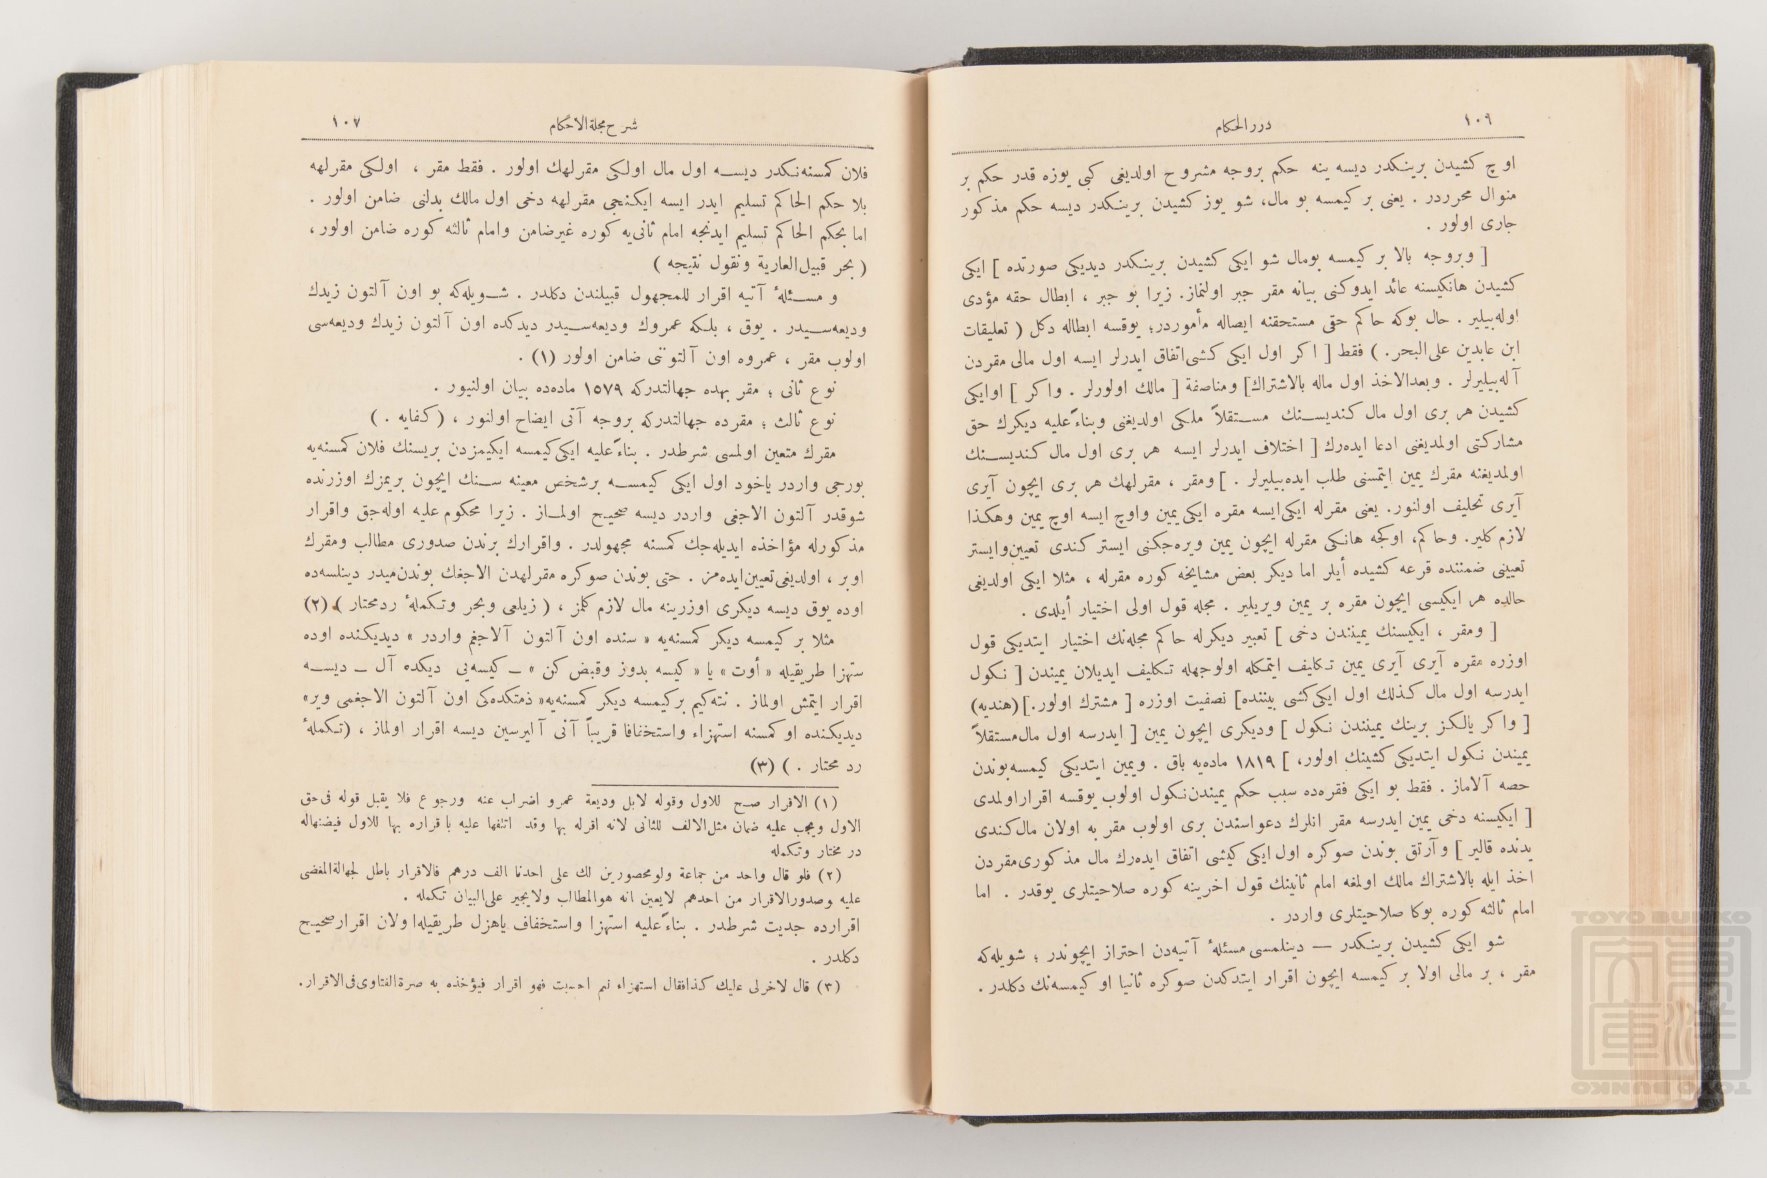 ١٠٩
دررالحكام
اوچ كشيدن برينكدر ديسه ينه حكم بروجه مشروح اولديغى كبى يوزه قدر حكم بر
منوال محرردر . يعنى بر كيمسه بو مال، شو يوز كشيدن برينكدر ديسه حكم مذكور
جارى اولور .
[ وبروجه بالا بر كيمسه بومال شو ايكى كشيدن برينكدر ديديكى صورتده ] ايكى
كشيدن هانكيسنه عائد ايدوكنى بيانه مقر جبر اولنماز. زيرا بو جبر ، ابطال حقه مؤدى
اوله‌بيلير . حال بوكه حاكم حقى مستحقنه ايصاله مأموردر؛ يوقسه ابطاله دكل ( تعليقات
ابن عابدين على‌البحر. ) فقط [ اكر اول ايكى كشى‌اتفاق ايدرلر ايسه اول مالى مقردن
آله‌بيليرلر . وبعدالاخذ اول ماله بالاشتراك] ومناصفة [ مالك اولورلر . واكر ] اوايكى
كشيدن هر برى اول مال كنديسنك مستقلاً ملكى اولديغنى وبناءً عليه ديكرك حق
مشاركتى اولمديغنى ادعا ايده‌رك [ اختلاف ايدرلر ايسه هر برى اول مال كنديسنك
اولمديغنه مقرك يمين ايتمسنى طلب ايده‌بيليرلر . ] ومقر ، مقرلهك هر برى ايچون آيرى
آيرى تحليف اولنور. يعنى مقرله ايكى‌ايسه مقره ايكى‌يمين واوچ ايسه اوچ يمين وهكذا
لازم كلير. وحاكم، اوكجه هانكى مقرله ايچون يمين ويره‌جكنى ايستر كندى تعيين‌وايستر
تعيينى ضمننده قرعه كشيده أيلر اما ديكر بعض مشايخه كوره مقرله ، مثلا ايكى اولديغى
حالده هر ايكيسى ايچون مقره بر يمين ويريلير . مجله قول اولى اختيار أيلدى .
[ ومقر ، ايكيسنك يميننده‌ن دخى ] تعبير ديكرله حاكم مجله‌نك اختيار ايتديكى قول
اوزره مقره آيرى آيرى يمين تكليف ايتمكله اولوجهله تكليف ايديلان يميندن [ نكول
ايدرسه اول مال كذلك اول ايكى‌كشى بيننده] نصفيت اوزره [ مشترك اولور.](هنديه)
[ واكر يالكز برينك يمينندن نكول ] وديكرى ايچون يمين [ ايدرسه اول مال‌مستقلاً
يميندن نكول ايتديكى كشينك اولور، ] ١٨١٩ ماده‌يه باق . ويمين ايتديكى كيمسه‌بوندن
حصه آلاماز . فقط بو ايكى فقره‌ده سبب حكم يميندن‌نكول اولوب يوقسه اقراراولمدى
[ ايكيسنه دخى يمين ايدرسه مقر انلرك دعواسندن برى اولوب مقر به اولان مال‌كندى
يدنده قالير ] وآرتق بوندن صوكره اول‌ايكى كيشى اتفاق ايده‌رك مال مذكورى‌مقردن
اخذ ايله بالاشتراك مالك اولمغه امام ثانينك قول اخرينه كوره صلاحيتلرى يوقدر . اما
امام ثالثه كوره بوكا صلاحيتلرى واردر .
شو ايكى كشيدن برينكدر — دينلمسى مسئلهٔ آتيه‌دن احتراز ايچوندر ؛ شويله‌كه
مقر ، بر مالى اولا بر كيمسه ايچون اقرار ايتدكدن صوكره ثانيا او كيمسه‌نك دكلدر .
شرح مجلة الاحكام
١٠٧
فلان كمسنه‌نكدر ديسه اول مال اولكى مقرلهك اولور . فقط مقر ، اولكى مقرلهه
بلا حكم الحاكم تسليم ايدر ايسه ايكنجى مقرلهه دخى اول مالك بدلنى ضامن اولور .
اما بحكم الحاكم تسليم ايدنجه امام ثانى‌يه كوره غيرضامن وامام ثالثه كوره ضامن اولور،
( بحر قبيل‌العارية ونقول نتيجه )
و مسئلهٔ آتيه اقرار للمجهول قبيلندن دكلدر . شويله‌كه بو اون آلتون زيدك
وديعه‌سيدر . يوق ، بلكه عمروك وديعه‌سيدر ديدكده اون آلتون زيدك وديعه‌سى
اولوب مقر ، عمروه اون آلتوننى ضامن اولور (١) .
نوع ثانى ؛ مقر بهده جهالتدركه ١٥٧٩ ماده‌ده بيان اولنيور .
نوع ثالث ؛ مقرده جهالتدركه بروجه آتى ايضاح اولنور ، ( كفايه . )
مقرك متعين اولمسى شرطدر . بناءً عليه ايكى‌كيمسه ايكيمزدن بريسنك فلان كمسنه‌يه
بورجى واردر ياخود اول ايكى كيمسه برشخص معينه سنك ايچون بريمزك اوزرنده
شوقدر آلتون الاجغى واردر ديسه صحيح اولماز . زيرا محكوم عليه اوله‌جق واقرار
مذكورله مؤاخذه ايديله‌جك كمسنه مجهولدر . واقرارك برندن صدورى مطالب ومقرك
اوبر ، اولديغى‌تعيين‌ايده‌مز . حتى بوندن صوكره مقرلهدن الاجغك بوندن‌ميدر دينلسه‌ده
اوده يوق ديسه ديكرى اوزرينه مال لازم كلمز ، ( زيلعى وبحر وتكملهٔ ردمحتار ) (٢)
مثلا بر كيمسه ديكر كمسنه‌يه « سنده اون آلتون آلاجغم واردر » ديديكنده اوده
ستهزا طريقيله « أوت » يا « كيسه بدوز وقبض كن » ـ كيسه‌يى ديكده آل ـ ديسه
اقرار ايتمش اولماز . نته‌كيم بركيمسه ديكر كمسنه‌يه« ذمتكده‌كى اون آلتون الاجغمى وير»
ديديكنده او كمسنه استهزاء واستخفافا قريباً آنى آليرسين ديسه اقرار اولماز ، (تكملهٔ
رد محتار . ) (٣)
(١) الاقرار صح للاول وقوله لابل وديعة عمرو اضراب عنه ورجوع فلا يقبل قوله فى‌حق
الاول ويجب عليه ضمان مثل‌الالف للثانى لانه اقرله بها وقد اتلفها عليه باقراره بها للاول فيضنهاله
در مختار وتكمله
(٢) فلو قال واحد من جماعة ولومحصورين لك على احدنا الف درهم فالاقرار باطل لجهالةالمغضى
عليه وصدورالاقرار من احدهم لايعين انه هوالمطالب ولايجبر على‌البيان تكمله .
اقرارده جديت شرطدر . بناءً عليه استهزا واستخفاف ياهزل طريقيله‌اولان اقرارصحيح
دكلدر .
(٣) قال لاخرلى عليك كذافقال استهزاء نعم احسبت فهو اقرار فيؤخذه به صرة‌الفتاوى‌فى‌الاقرار.
TOYO BUNKO
TOYO BUNKO